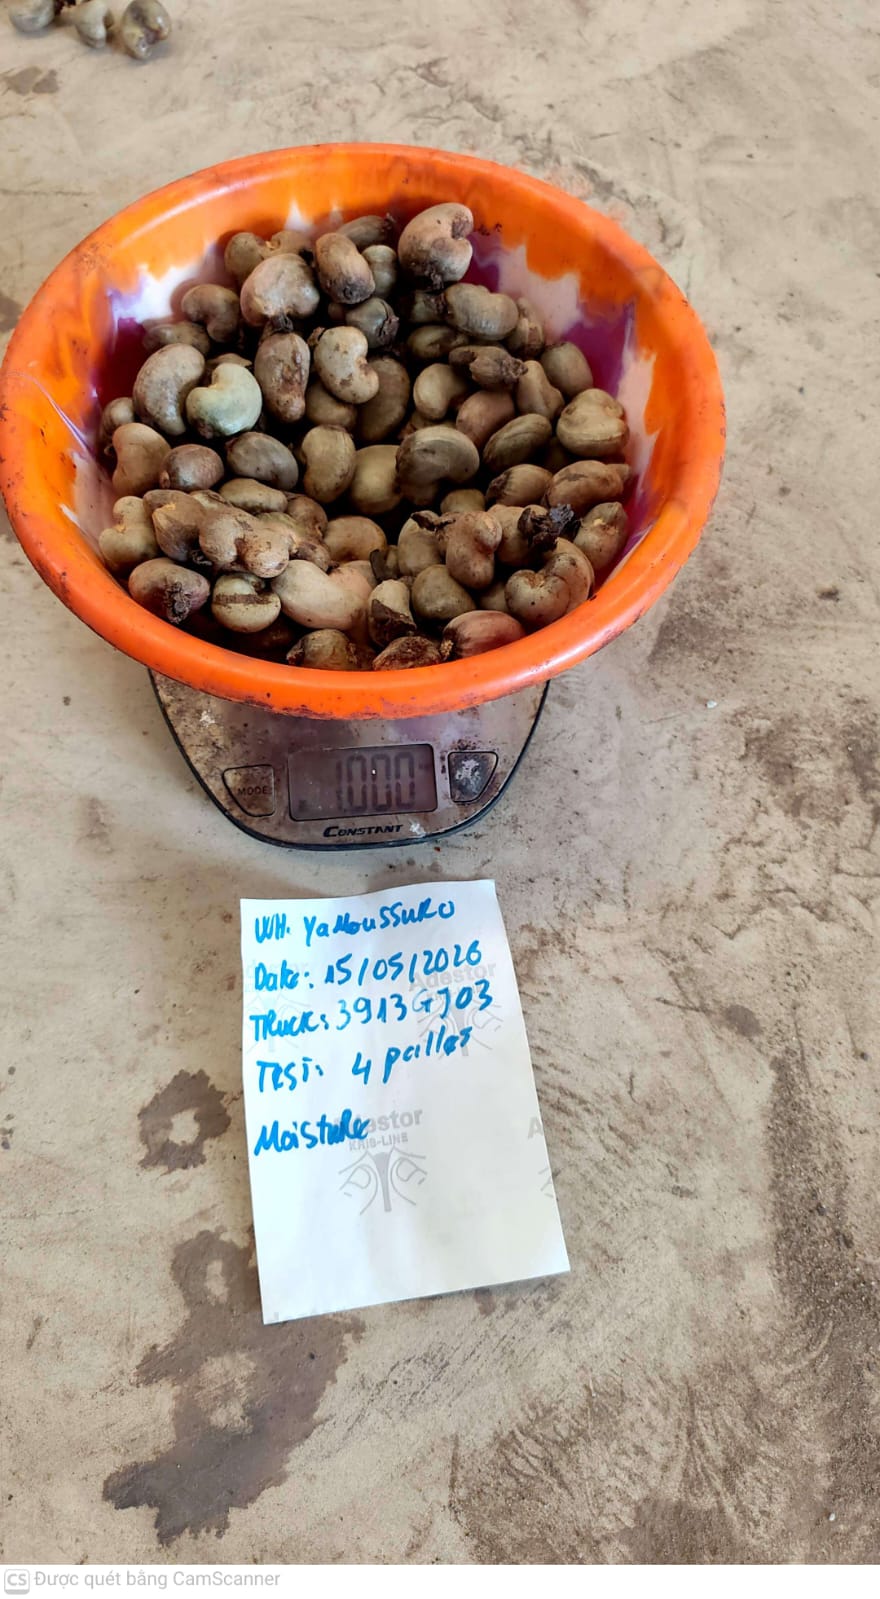 MODE
1.000
CONSTANT
WH. YaMouSSuKRo
Date: 15/05/2026
TRuck: 3913GJ03
TEST: 4 pailles
MoistuRe
Adestor
Adestor
KRIS-LINE
CS Được quét bằng CamScanner